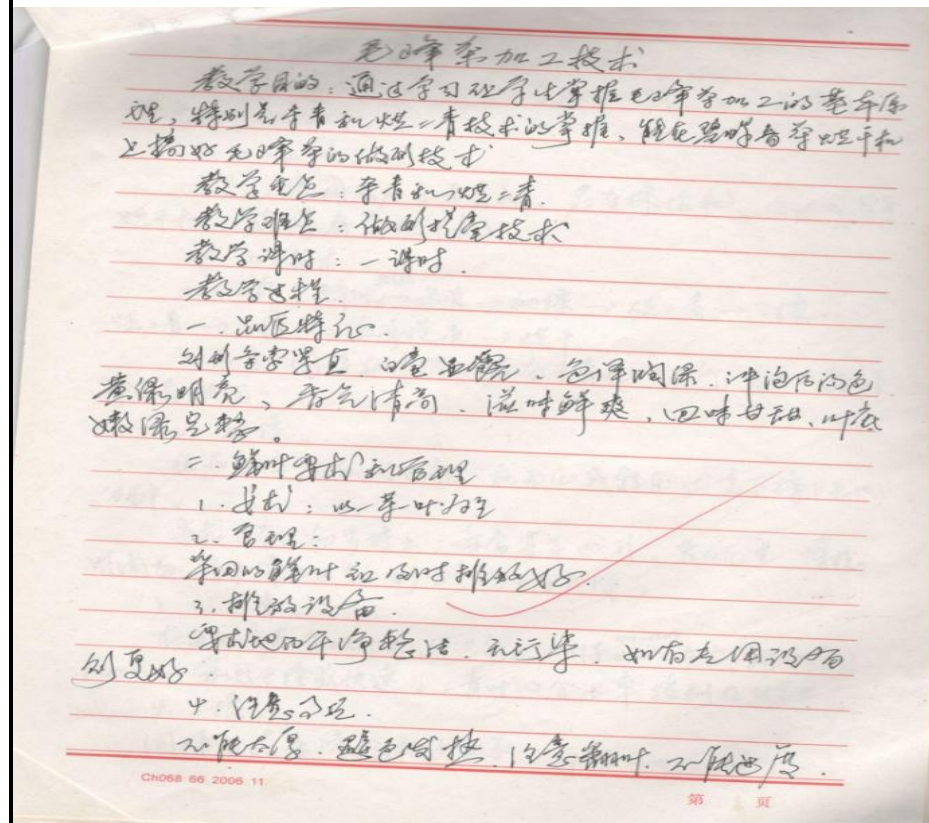 毛峰茶加工技术
教学目的：通过学习让学生掌握毛峰茶加工的基本原
理，特别是杀青和烘二青技术的掌握，能在碧峰香茶烘干机
上搞好毛峰茶的做形技术
教学重点：杀青和烘二青.
教学难点：做形提毫技术
教学课时：一课时.
教学过程.
一.品质特征.
外形条索紧直、白毫显露、色泽润绿.冲泡后汤色
黄绿明亮、香气清高.滋味鲜爽、回味甘甜、叶底
嫩绿完整。
二.鲜叶要求和管理
1.要求：以一芽一叶为主
2.管理：
采回的鲜叶应及时摊放好.
3.摊放设备.
要求地面干净整洁.无污染.如有专用设备
则更好
4.注意事项.
不能太厚.避免发热.注意翻叶.不能过厚.
Ch068 66 2006 11
第 页